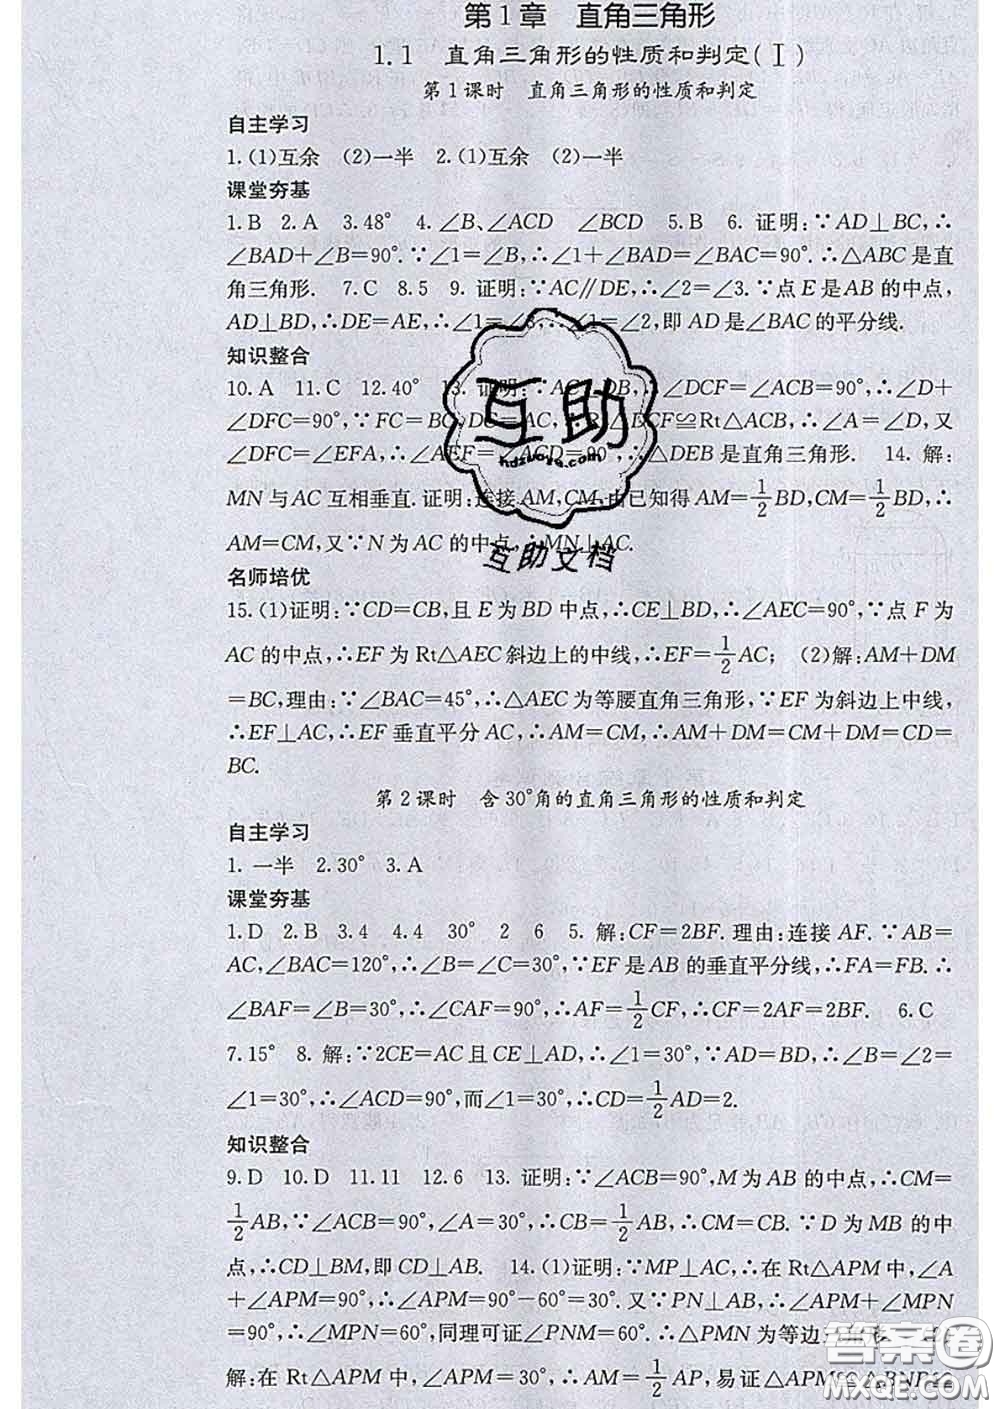 第1章　直角三角形
1.1　直角三角形的性质和判定(Ⅰ)
第1课时　直角三角形的性质和判定
自主学习
1.(1)互余　(2)一半　2.(1)互余　(2)一半
课堂夯基
1.B　2.A　3.48°　4.∠B、∠ACD　∠BCD　5.B　6. 证明:∵AD⊥BC,∴
∠BAD+∠B=90°.∵∠1=∠B,∴∠1+∠BAD=∠BAC=90°.∴△ABC是直
角三角形.　7.C　8.5　9. 证明:∵AC∥DE,∴∠2=∠3.∵点E是AB的中点,
AD⊥BD,∴DE=AE,∴∠1=∠3,∴∠1=∠2,即AD是∠BAC的平分线.
知识整合
10.A　11.C　12.40°　13. 证明:∵AC⊥DB,∴∠DCF=∠ACB=90°,∴∠D+
∠DFC=90°,∵FC=BC,DC=AC,∴Rt△DCF≌Rt△ACB,∴∠A=∠D,又
∠DFC=∠EFA,∴∠AEF=∠ACD=90°,∴△DEB是直角三角形.　14. 解:
MN与AC互相垂直.证明:连接AM,CM,由已知得AM=1/2BD,CM=1/2BD,∴
AM=CM,又∵N为AC的中点,∴MN⊥AC.
名师培优
15.(1)证明:∵CD=CB,且E为BD中点,∴CE⊥BD,∴∠AEC=90°,∵点F为
AC的中点,∴EF为Rt△AEC斜边上的中线,∴EF=1/2AC;　(2)解:AM+DM
=BC,理由:∵∠BAC=45°,∴△AEC为等腰直角三角形,∵EF为斜边上中线,
∴EF⊥AC,∴EF垂直平分AC,∴AM=CM,∴AM+DM=CM+DM=CD=
BC.
第2课时　含30°角的直角三角形的性质和判定
自主学习
1. 一半　2.30°　3.A
课堂夯基
1.D　2.B　3.4　4.4　30°　2　6　5. 解:CF=2BF.理由:连接AF.∵AB=
AC,∠BAC=120°,∴∠B=∠C=30°,∵EF是AB的垂直平分线,∴FA=FB.∴
∠BAF=∠B=30°,∴∠CAF=90°,∴AF=1/2CF,∴CF=2AF=2BF.　6.C
7.15°　8. 解:∵2CE=AC且CE⊥AD,∴∠1=30°,∵AD=BD,∴∠B=∠2=
∠1=30°,∴∠ACD=90°,而∠1=30°,∴CD=1/2AD=2.
知识整合
9.D　10.D　11.11　12.6　13. 证明:∵∠ACB=90°,M为AB的中点,∴CM=
1/2AB,∵∠ACB=90°,∠A=30°,∴CB=1/2AB,∴CM=CB.∵D为MB的中
点,∴CD⊥BM,即CD⊥AB.　14.(1)证明:∵MP⊥AC,∴在Rt△APM中,∠A
+∠APM=90°,∴∠APM=90°-60°=30°.又∵PN⊥AB,∴∠APM+∠MPN
=90°,∴∠MPN=60°,同理可证∠PNM=60°.∴△PMN为等边三角形.
解:在Rt△APM中,∠APM=30°,∴AM=1/2AP,易证△APM≌△BNP≌
互助
hdzuoye.com
互助文档
答案圈
MXQE.COM